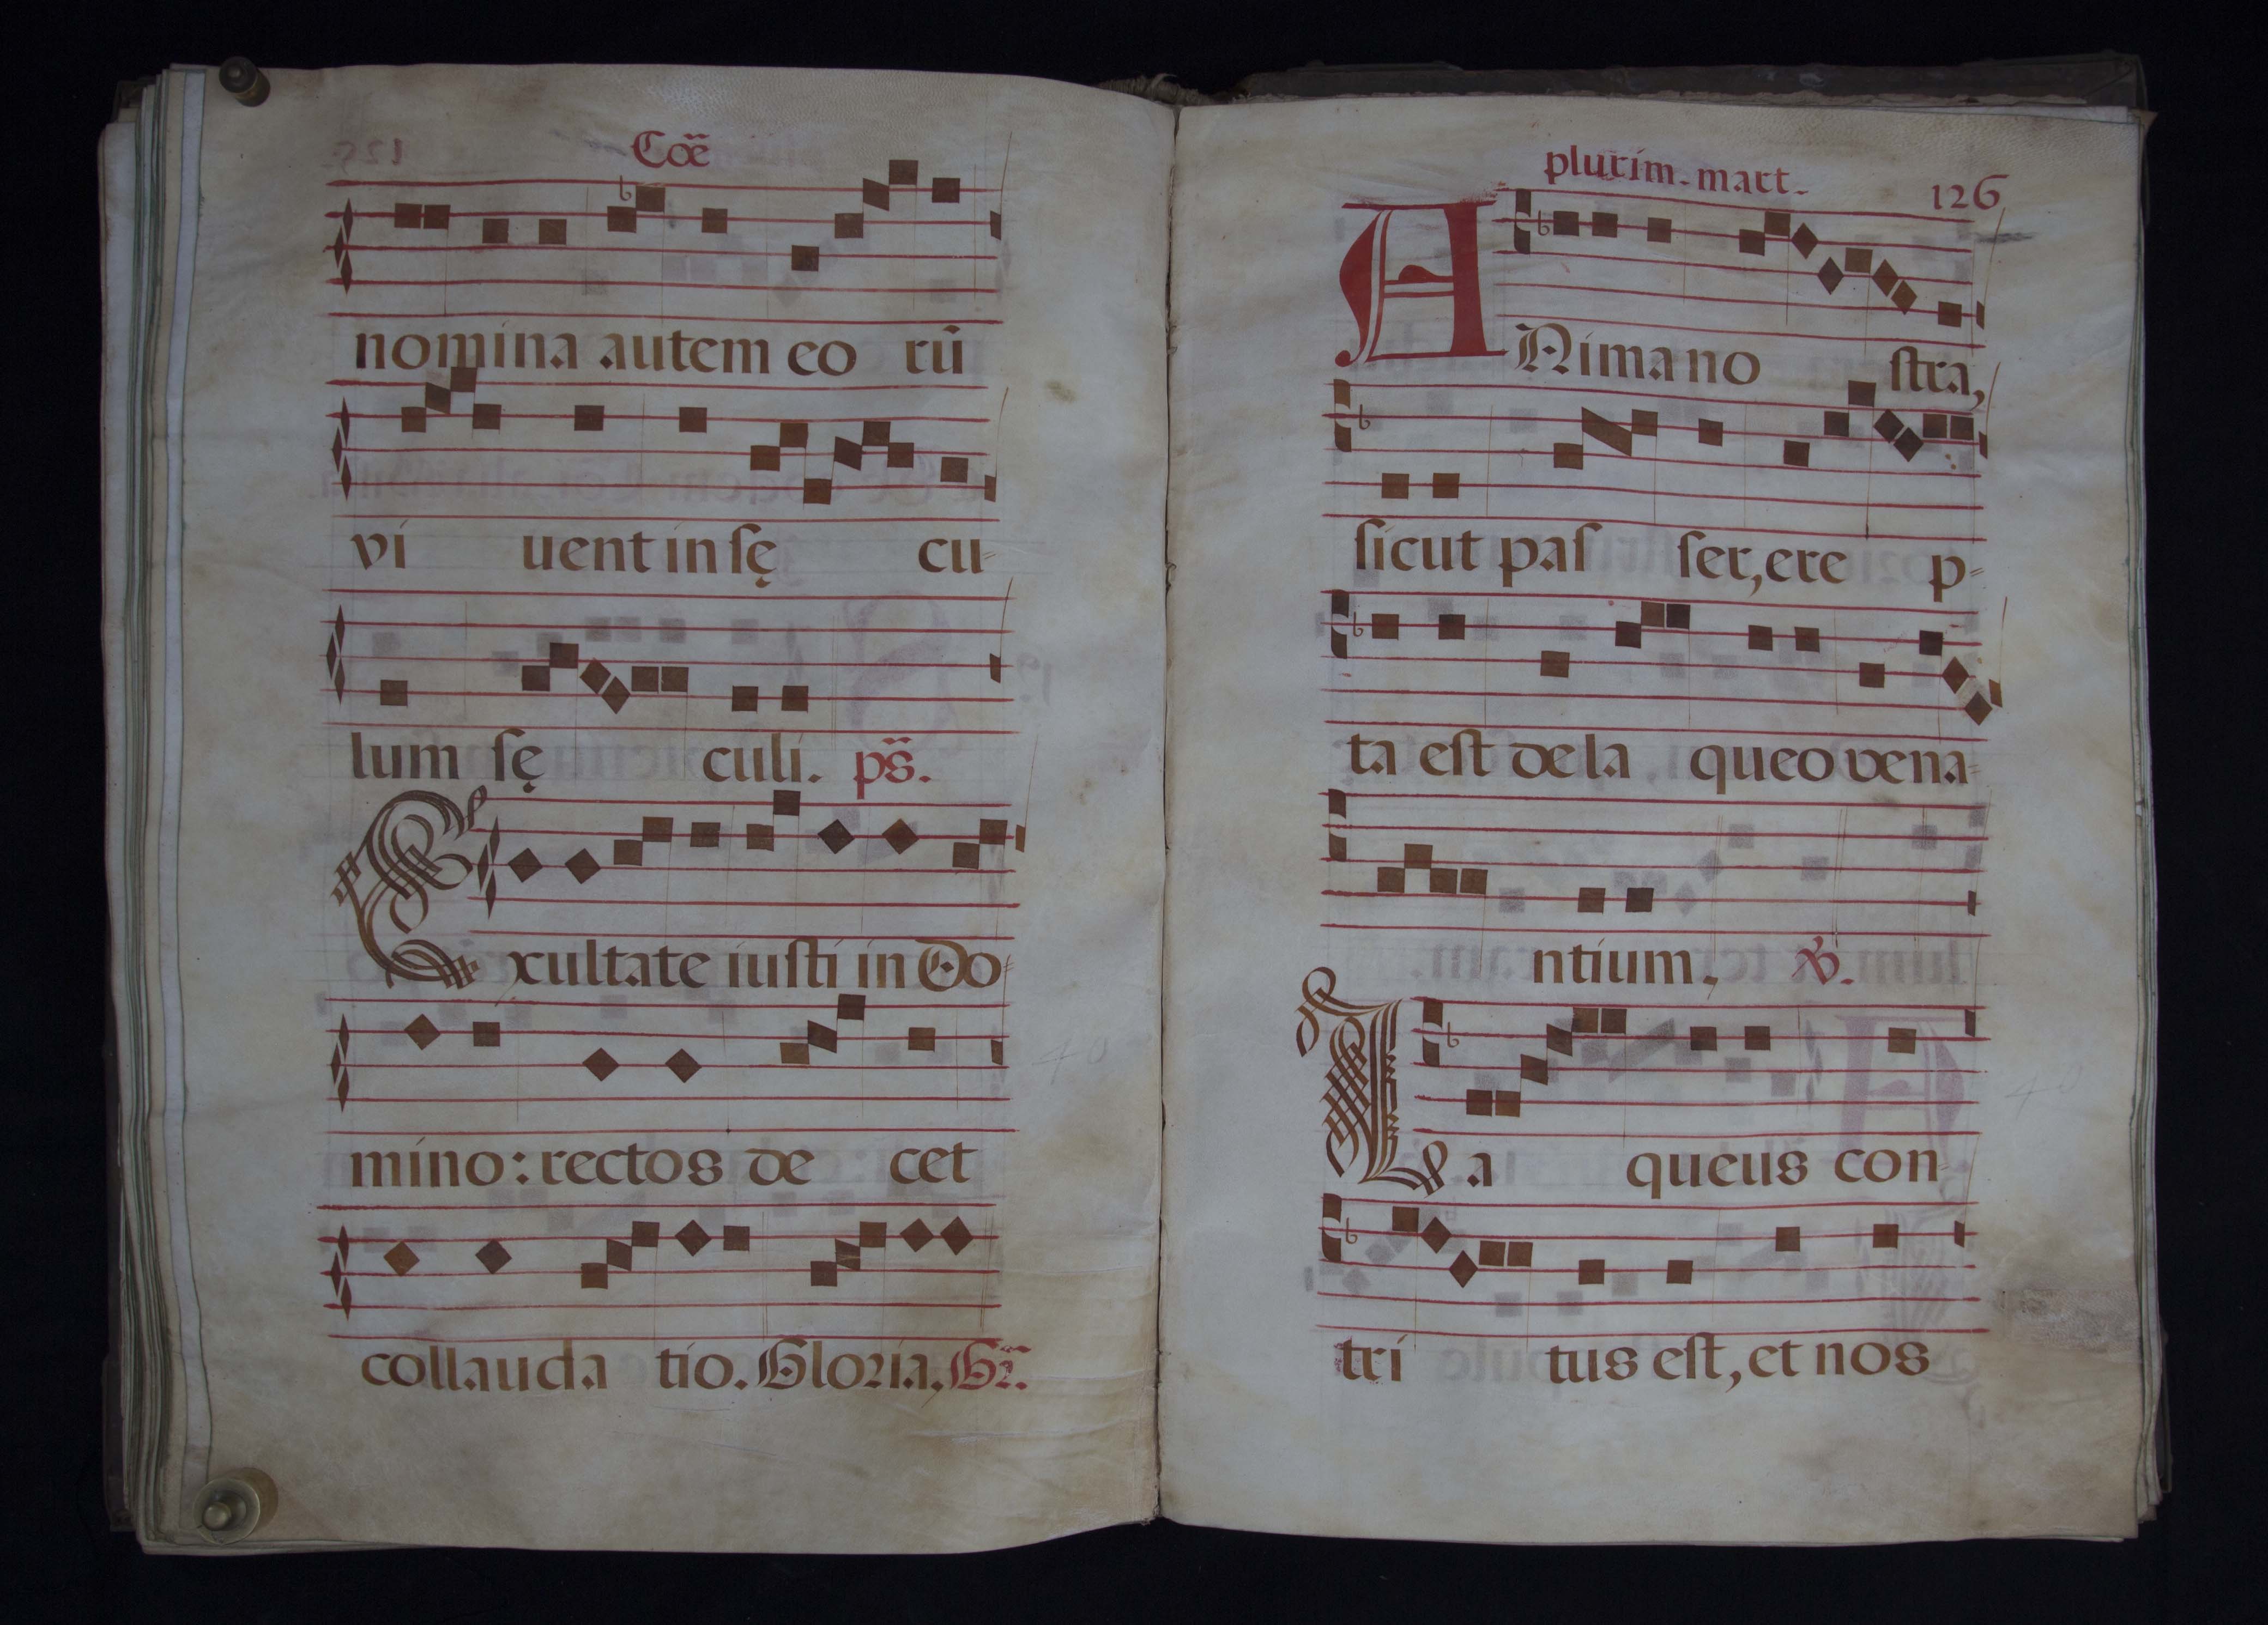 Cōē
nomina autem eo rū
vi uent in ſę cu-
lum ſę culi. ps̄.
Exultate iuſti in Do-
mino: rectos de cet
collauda tio. Gloria. Gr̄.
plurim. mart. 126
ANima no ſtra,
ſicut paſ ſer, ere p-
ta eſt de la queo vena-
ntium. ℣.
La queus con-
tri tus eſt, et nos